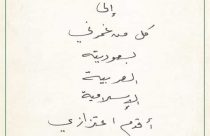 إلى
كل من غمرني
بسعوديته
العربية
الإسلامية
أقدم اعتزازي